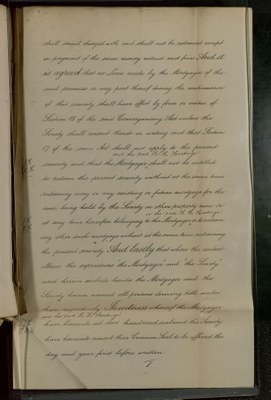 shall stand charged with and shall not be redeemed except
on payment of the same money interest and fines And it
is agreed that no Lease made by the Mortgagor of the
said premises or any part thereof during the continuance
of this security shall have effect by force or virtue of
Section 18 of the said Conveyancing Act unless the
Society shall consent thereto in writing and that Section
17 of the same Act shall not apply to the present
security and that the Mortgagor shall not be entitled
to redeem this present security without at the same time
redeeming any or any existing or future mortgage for the
time being held by the Society on other property now or
at any time hereafter belonging to the Mortgagor
any other such mortgage without at the same time redeeming
the present security And Lastly that where the context
allows the expressions "the Mortgagor" and "the Society"
used herein include besides the Mortgagor and the
Society herein named all persons deriving title under
them respectively In witness whereof the Mortgagor
and the said
have hereunto set hand and seal and the Society
have hereunto caused their Common Seal to be affixed the
day and year first before written